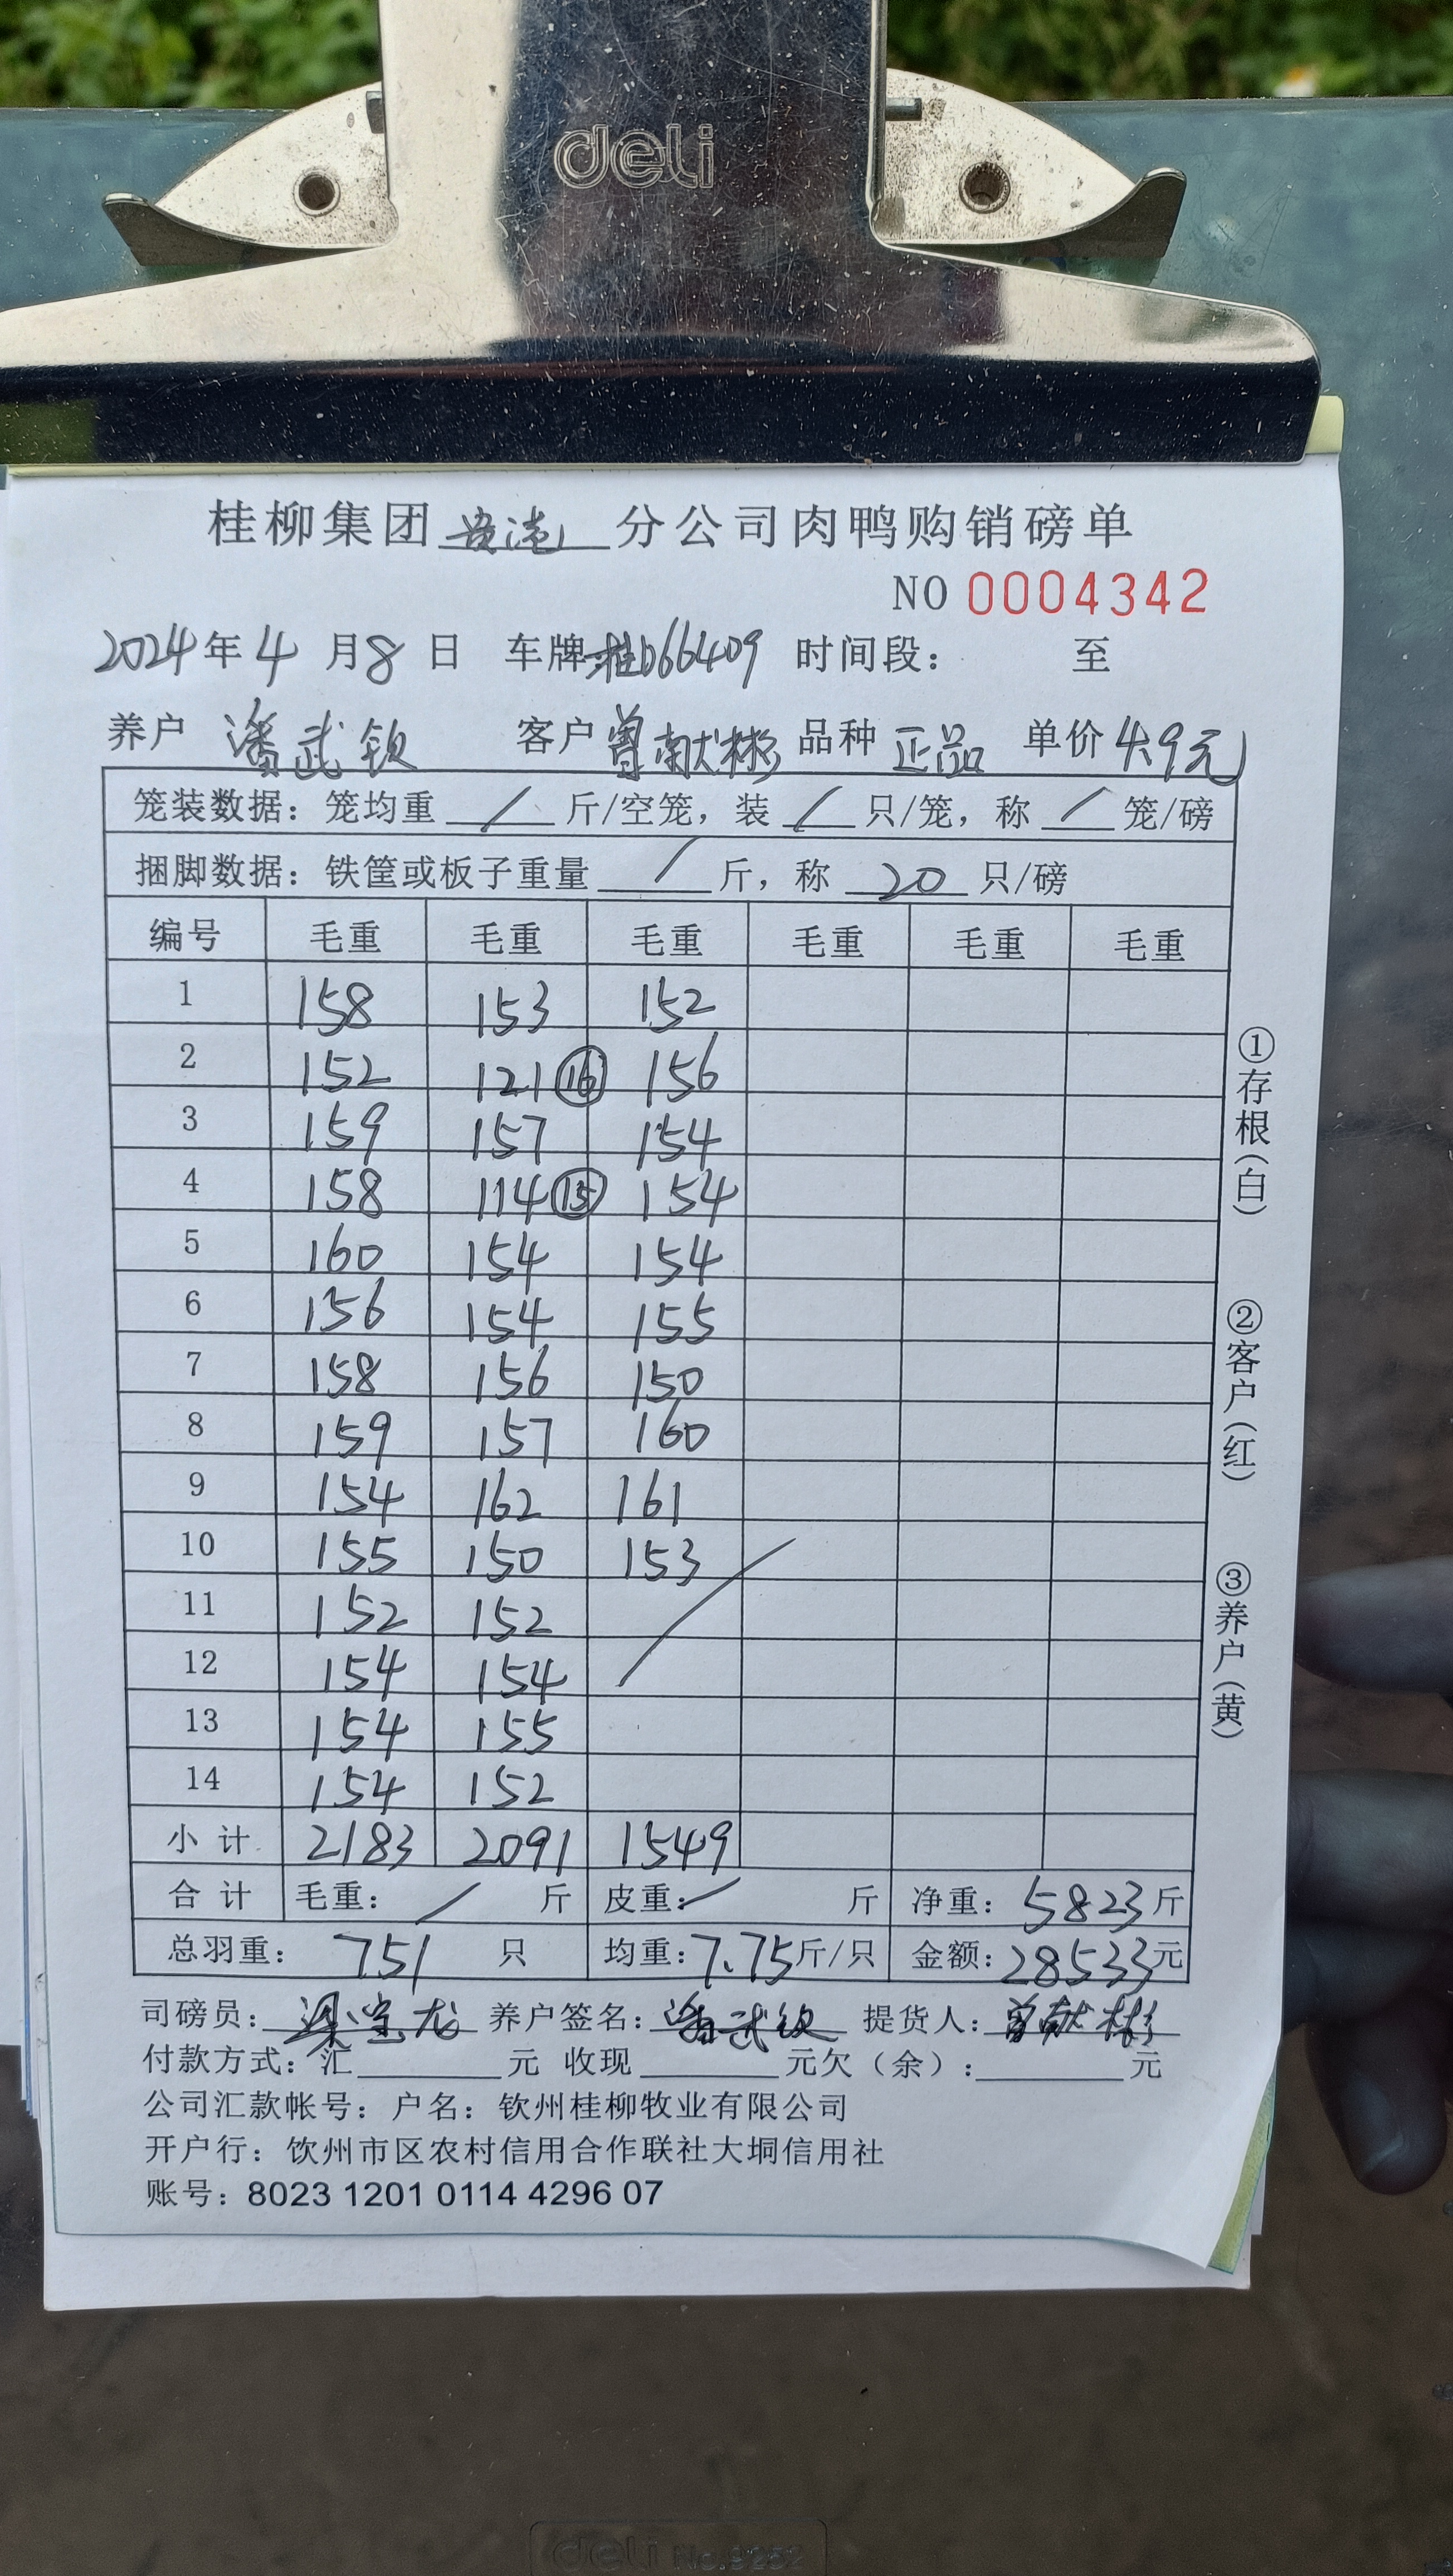 deli
桂柳集团贵港分公司肉鸭购销磅单
NO 0004342
2024年4月8日 车牌:桂b66409 时间段: 至
养户 潘武钦 客户 曾献彬 品种 正品 单价 4.9元
笼装数据: 笼均重 / 斤/空笼, 装 / 只/笼, 称 / 笼/磅
捆脚数据: 铁筐或板子重量 / 斤, 称 20 只/磅
编号 毛重 毛重 毛重 毛重 毛重 毛重
1 158 153 152
2 152 121 ⑯ 156
3 159 157 154
4 158 114 ⑮ 154
5 160 154 154
6 156 154 155
7 158 156 150
8 159 157 160
9 154 162 161
10 155 150 153
11 152 152
12 154 154
13 154 155
14 154 152
小计 2183 2091 1549
合计 毛重: / 斤 皮重: / 斤 净重: 5823斤
总羽重: 751 只 均重: 7.75斤/只 金额: 28533元
司磅员: 梁宝龙 养户签名: 潘武钦 提货人: 曾献彬
付款方式: 汇 元 收现 元欠(余): 元
公司汇款帐号: 户名: 钦州桂柳牧业有限公司
开户行: 饮州市区农村信用合作联社大垌信用社
账号: 8023 1201 0114 4296 07
①存根(白)
②客户(红)
③养户(黄)
deli No.9252